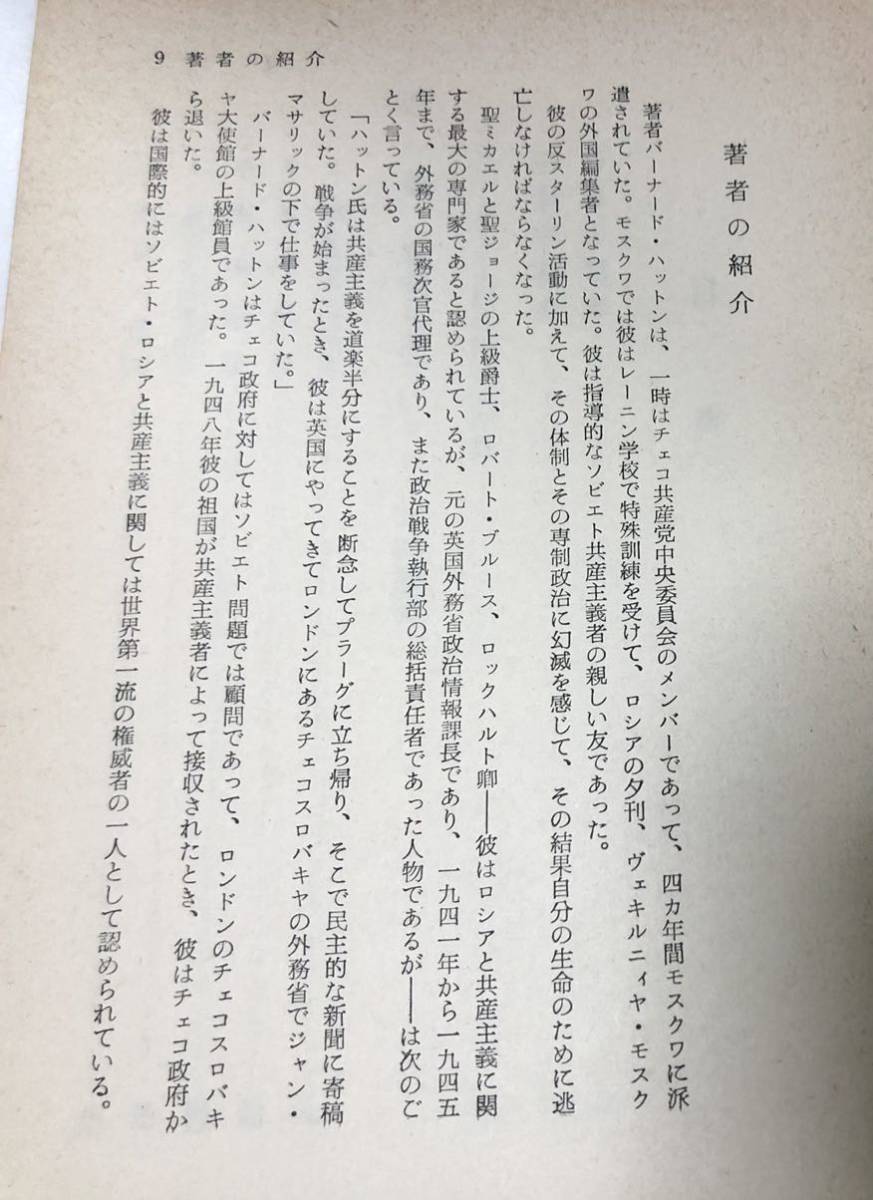 9 著者の紹介
著者の紹介
著者バーナード・ハットンは、一時はチェコ共産党中央委員会のメンバーであって、四カ年間モスクワに派
遣されていた。モスクワでは彼はレーニン学校で特殊訓練を受けて、ロシアの夕刊、ヴェキルニィヤ・モスク
ワの外国編集者となっていた。彼は指導的なソビエト共産主義者の親しい友であった。
彼の反スターリン活動に加えて、その体制とその専制政治に幻滅を感じて、その結果自分の生命のために逃
亡しなければならなくなった。
聖ミカエルと聖ジョージの上級爵士、ロバート・ブルース、ロックハルト卿――彼はロシアと共産主義に関
する最大の専門家であると認められているが、元の英国外務省政治情報課長であり、一九四一年から一九四五
年まで、外務省の国務次官代理であり、また政治戦争執行部の総括責任者であった人物であるが――は次のご
とく言っている。
「ハットン氏は共産主義を道楽半分にすることを断念してプラーグに立ち帰り、そこで民主的な新聞に寄稿
していた。戦争が始まったとき、彼は英国にやってきてロンドンにあるチェコスロバキヤの外務省でジャン・
マサリックの下で仕事をしていた。」
バーナード・ハットンはチェコ政府に対してはソビエト問題では顧問であって、ロンドンのチェコスロバキ
ヤ大使館の上級館員であった。一九四八年彼の祖国が共産主義者によって接収されたとき、彼はチェコ政府か
ら退いた。
彼は国際的にはソビエト・ロシアと共産主義に関しては世界第一流の権威者の一人として認められている。